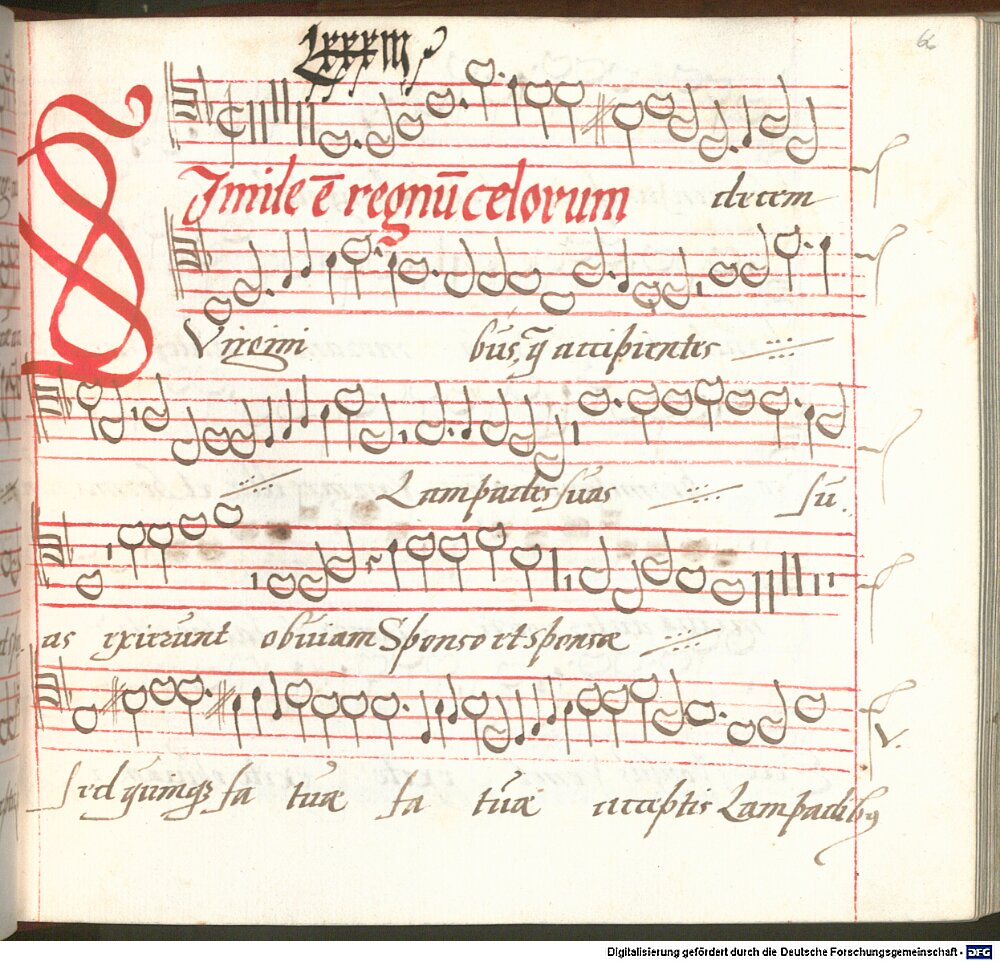 LXXXIII
66
Simile ē regnū celorum decem
Virgini bus, q̄ accipientes
Lampades suas sū.
as exierunt obuiam Sponso et sponsæ
V.
sed qumqз fa tuæ fa tuæ acceptis Lampadibꝰ
Digitalisierung gefördert durch die Deutsche Forschungsgemeinschaft - DFG